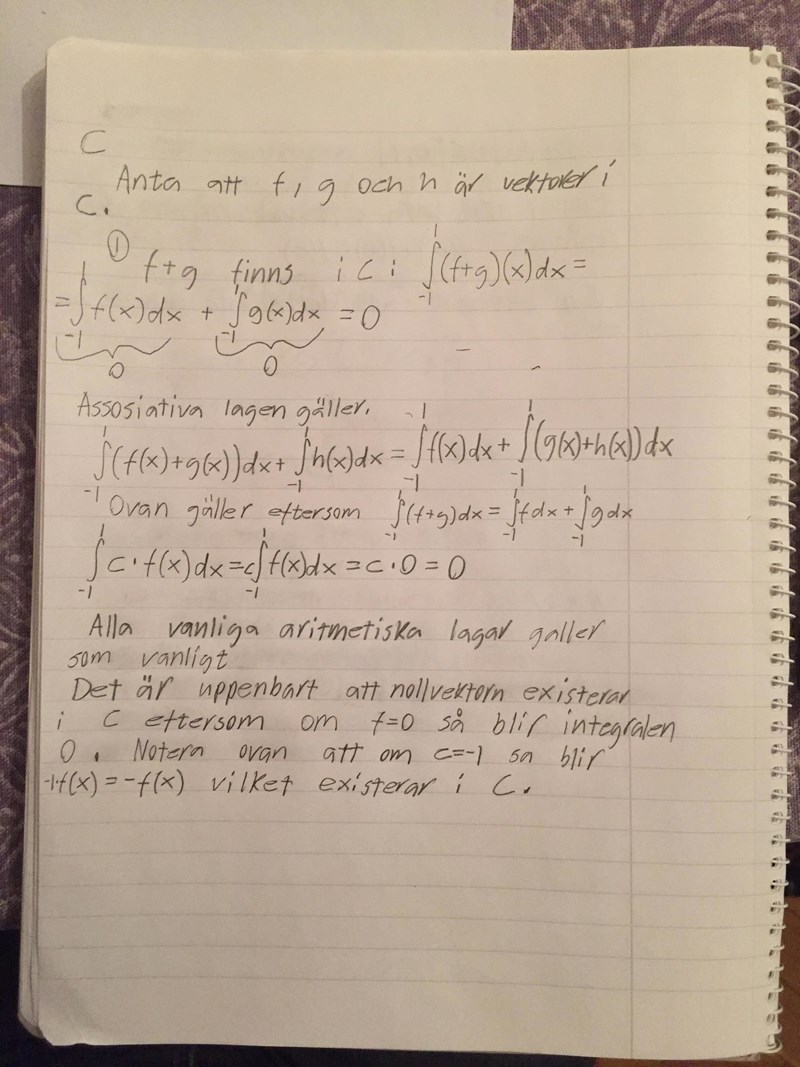 C
Anta att f, g och h är vektorer i
C.
① f+g finns i C : ∫₋₁¹(f+g)(x)dx =
= ∫₋₁¹ f(x)dx + ∫₋₁¹ g(x)dx = 0
0 0
Assosiativa lagen gäller.
∫₋₁¹(f(x)+g(x))dx + ∫₋₁¹h(x)dx = ∫₋₁¹f(x)dx + ∫₋₁¹(g(x)+h(x))dx
Ovan gäller eftersom ∫₋₁¹(f+g)dx = ∫₋₁¹fdx + ∫₋₁¹gdx
∫₋₁¹ c·f(x)dx = c∫₋₁¹f(x)dx = c·0 = 0
Alla vanliga aritmetiska lagar galler
som vanligt
Det är uppenbart att nollvektorn existerar
i C eftersom om f=0 så blir integralen
0. Notera ovan att om c=-1 sa blir
-1·f(x) = -f(x) vilket existerar i C.